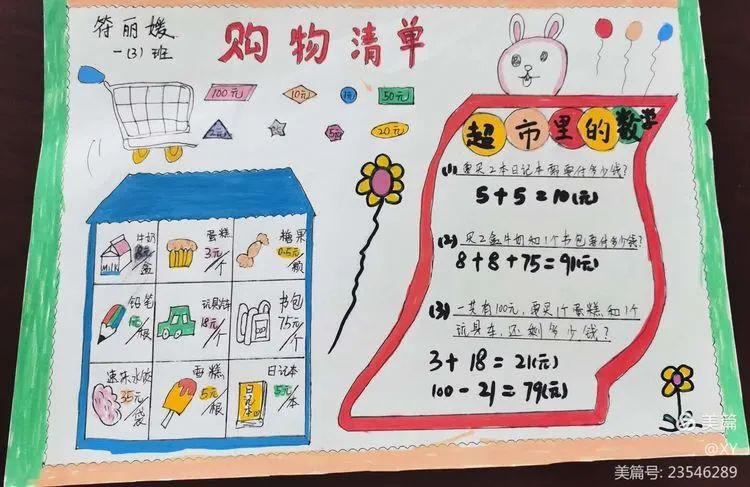 符丽媛
一(3)班
购物清单
100元
10元
1元
50元
5元
20元
超市里的数学
(1) 要买2本日记本需要付多少钱?
5+5=10(元)
(2) 买2盒牛奶和1个书包要付多少钱?
8+8+75=91(元)
(3) 一共有100元,要买1个蛋糕和1个
玩具车,还剩多少钱?
3+18=21(元)
100-21=79(元)
牛奶
8元/盒
MILK
蛋糕
3元/个
糖果
0.5元/颗
铅笔
1元/根
玩具车
18元/个
书包
75元/个
速冻水饺
35元/袋
雪糕
5元/根
日记本
5元/本
日记本
美篇
@XY
美篇号: 23546289